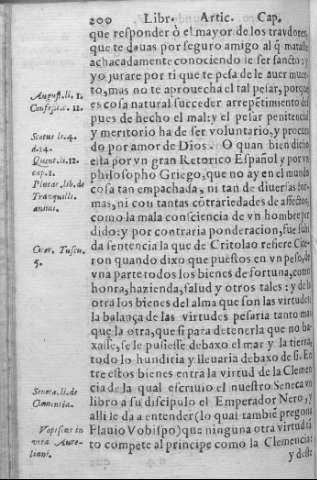 200 Libr. Artic. Cap.
que responder ò el mayor de los traydores,
que te dauas por seguro amigo al q̃ matauas
achacadamente conociendo le ser sancto: y
yo jurare por ti que te pesa de le auer muer-
to, mas no te aprouecha el tal pesar, porque
es cosa natural succeder arrepẽtimiento des
pues de hecho el mal: y el pesar penitencial
y meritorio ha de ser voluntario, y procura
do por amor de Dios. O quan bien dicho
esta por vn gran Retorico Español y por vn
philosopho Griego, que no ay en el mundo
cosa tan empachada, ni tan de diuersas for-
mas, ni con tantas cõtrariedades de affectos,
como la mala consciencia de vn hombre per
dido: y por contraria ponderacion, fue subi
da sentencia la que de Critolao refiere Cice-
ron quando dixo que puestos en vn peso, de
vna parte todos los bienes de fortuna, como
honra, hazienda, salud y otros tales: y de la
otra los bienes del alma que son las virtudes,
la balança de las virtudes pesaria tanto mas
que la otra, que si para detenerla que no ba-
xasse, se le pusiesse debaxo el mar y la tierra,
todo lo hundiria y lleuaria debaxo de si. En
tre estos bienes entra la virtud de la Clemen
cia de la qual escriuio el nuestro Seneca vn
libro a su discipulo el Emperador Nero, y
alli le da a entender (lo qual tambiẽ pregona
Flauio Vobispo) que ninguna otra virtud tã
to compete al principe como la Clemencia:
y deste
August. li. 1.
Confess. c. 12.
Scotus li. 4.
d. 14.
Quint. li. 12.
cap. 1.
Plutar. lib. de
Tranquilli.
animi.
Cicer. Tuscu.
5.
Seneca. li. de
Clementia.
Vopiscus in
vita Aure-
liani.